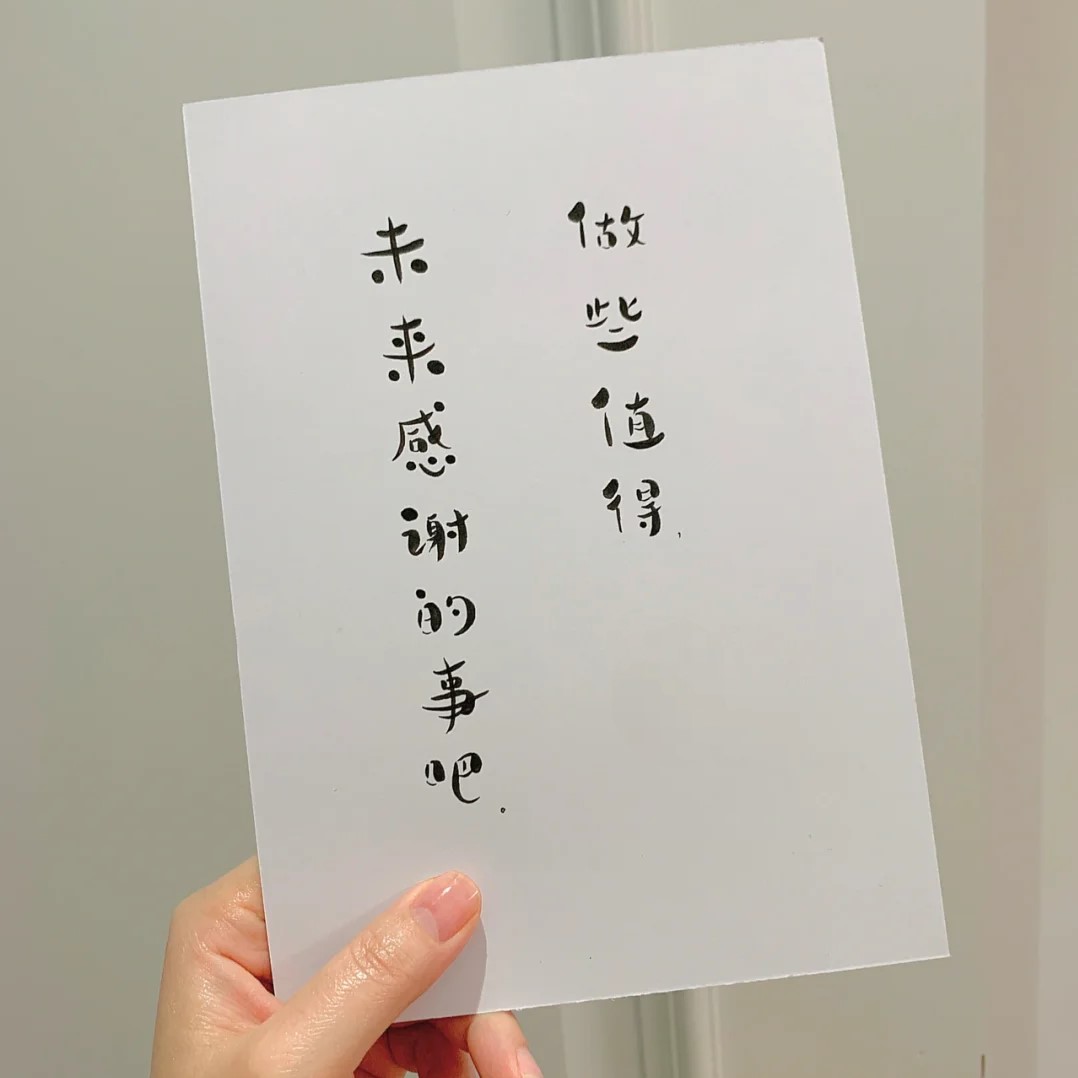 做些值得,
未来感谢的事吧。